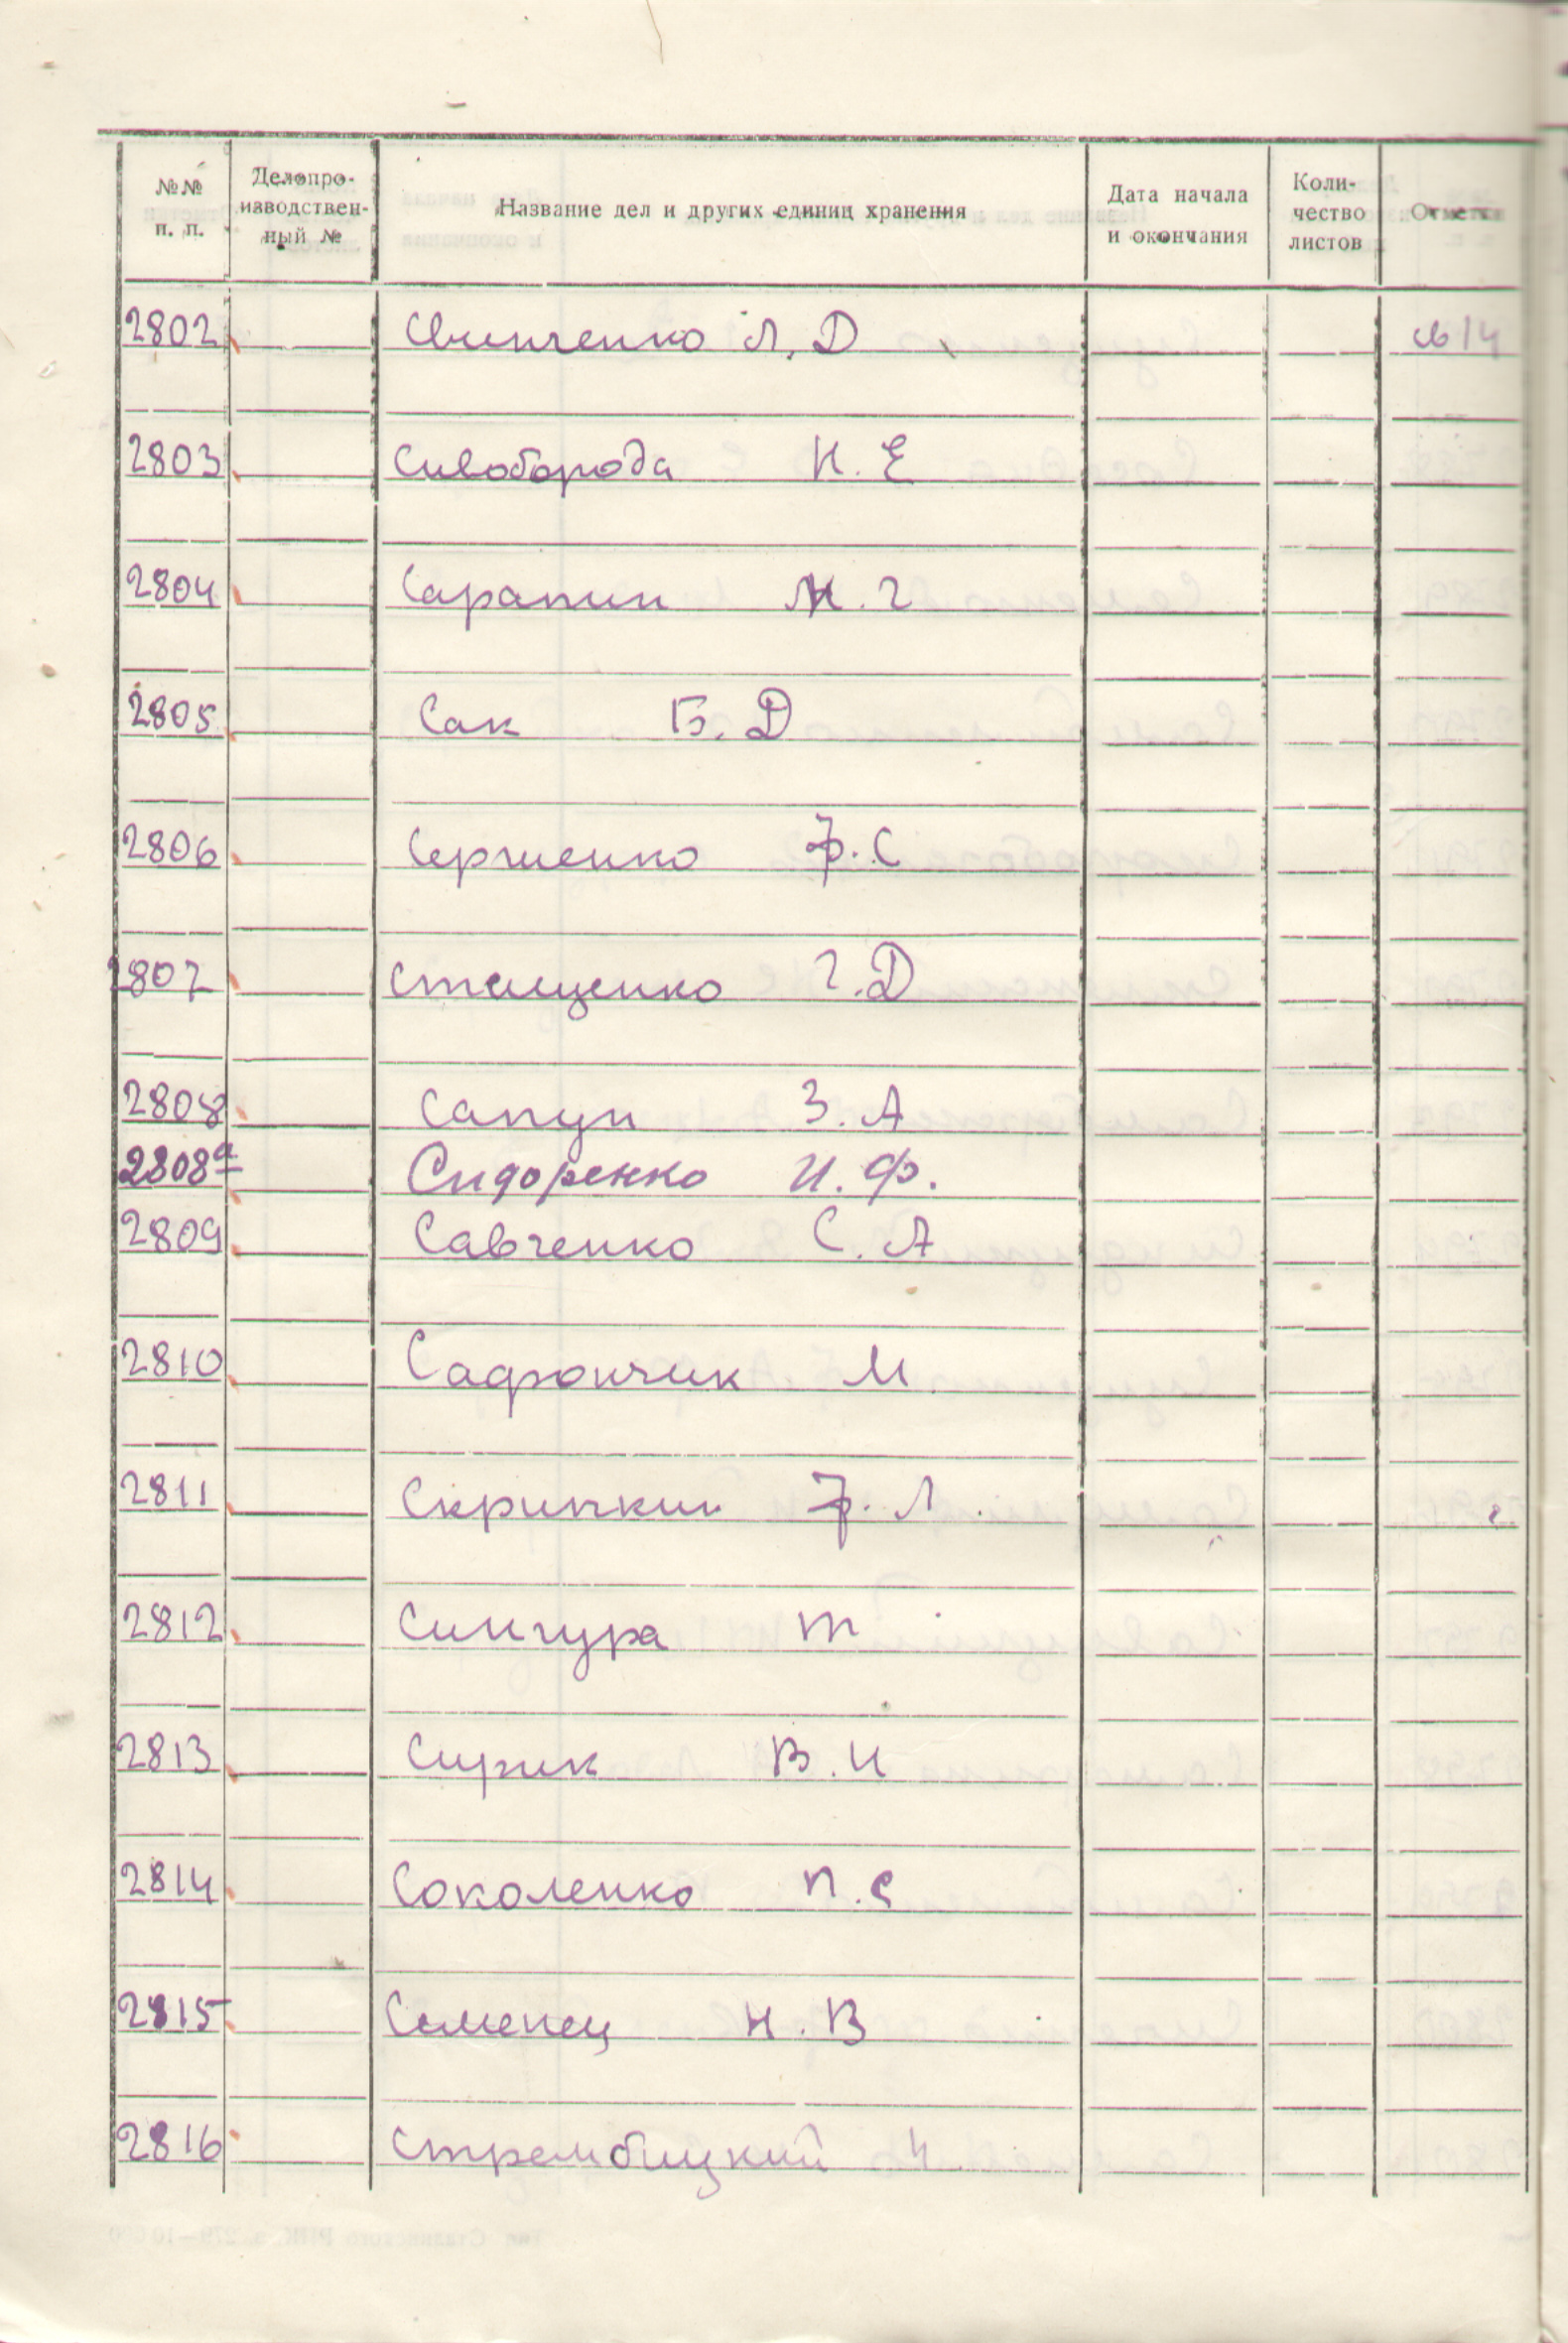 №№ п. п. Делопро-изводствен-ный № Название дел и других единиц хранения Дата начала и окончания Коли-чество листов Отметка
2802 Свинченко Л. Д
2803 Сивоборода Н. Е
2804 Сарапин М. Г
2805 Сак Б. Д
2806 Сергиенко Ф. С
2807 Стащенко Г. Д
2808 Сапун З. А
2808а Сидоренко И. Ф.
2809 Савченко С. А
2810 Сафончик М
2811 Скрипкин Ф. Л.
2812 Сингура Т
2813 Сирик В. И
2814 Соколенко П. С
2815 Семенец Н. В
2816 Стрембицкий